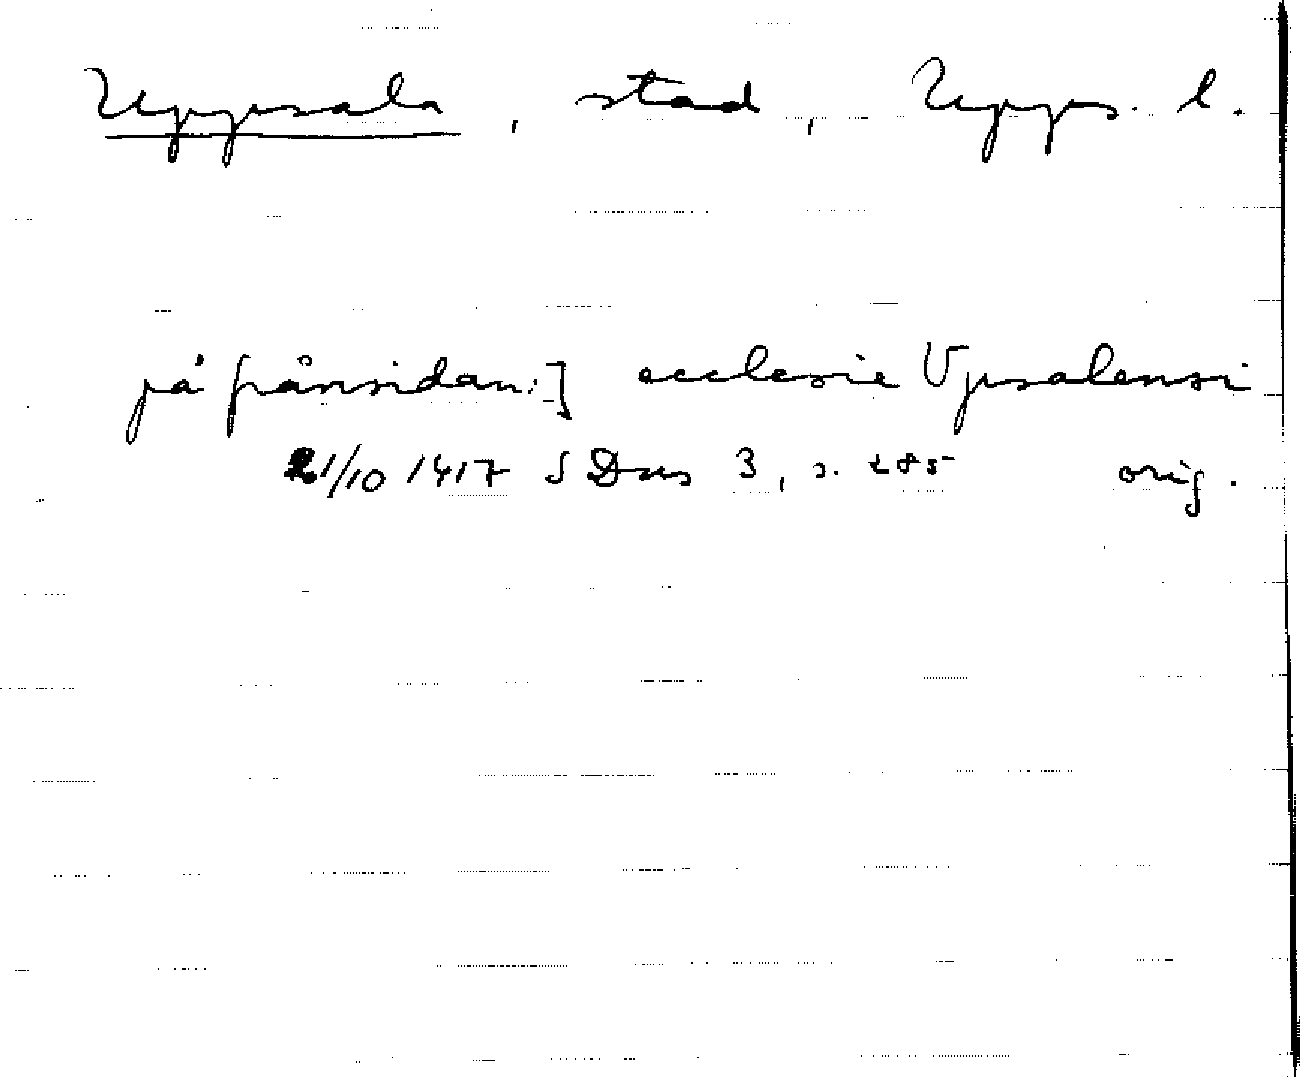 Uppsala, stad, Upps. l.
på frånsidan:] ecclesie Vpsalensi
21/10 1417 SDns 3, s. 285 orig.